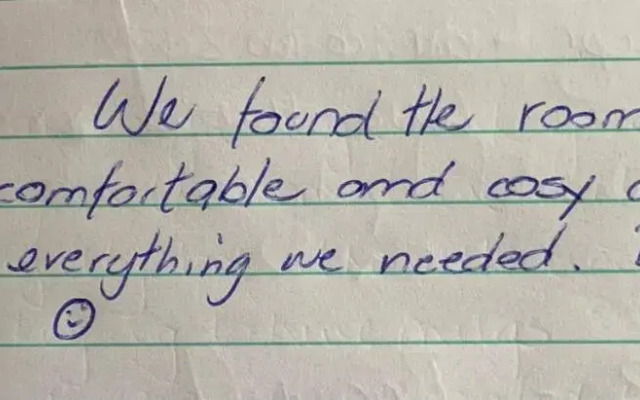 We found the room
comfortable and cosy
everything we needed.